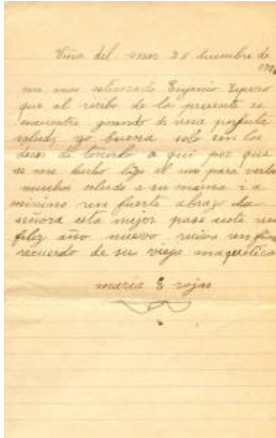 Viña del mar 20 diciembre de
mi mas estimado Eujenio Espero
que al recibo de la presente se
encuentre gosando de una perfecta
salud, yo buena solo con los
deseos de tenerlo a qui por que
se me hecho largo el mes para verlo
muchos saludo a su mamá i a
mi un fuerte abrazo la
señora esta mejor pase uste un
feliz año nuevo reciva un fino
recuerdo de su vieja
maria E rojas